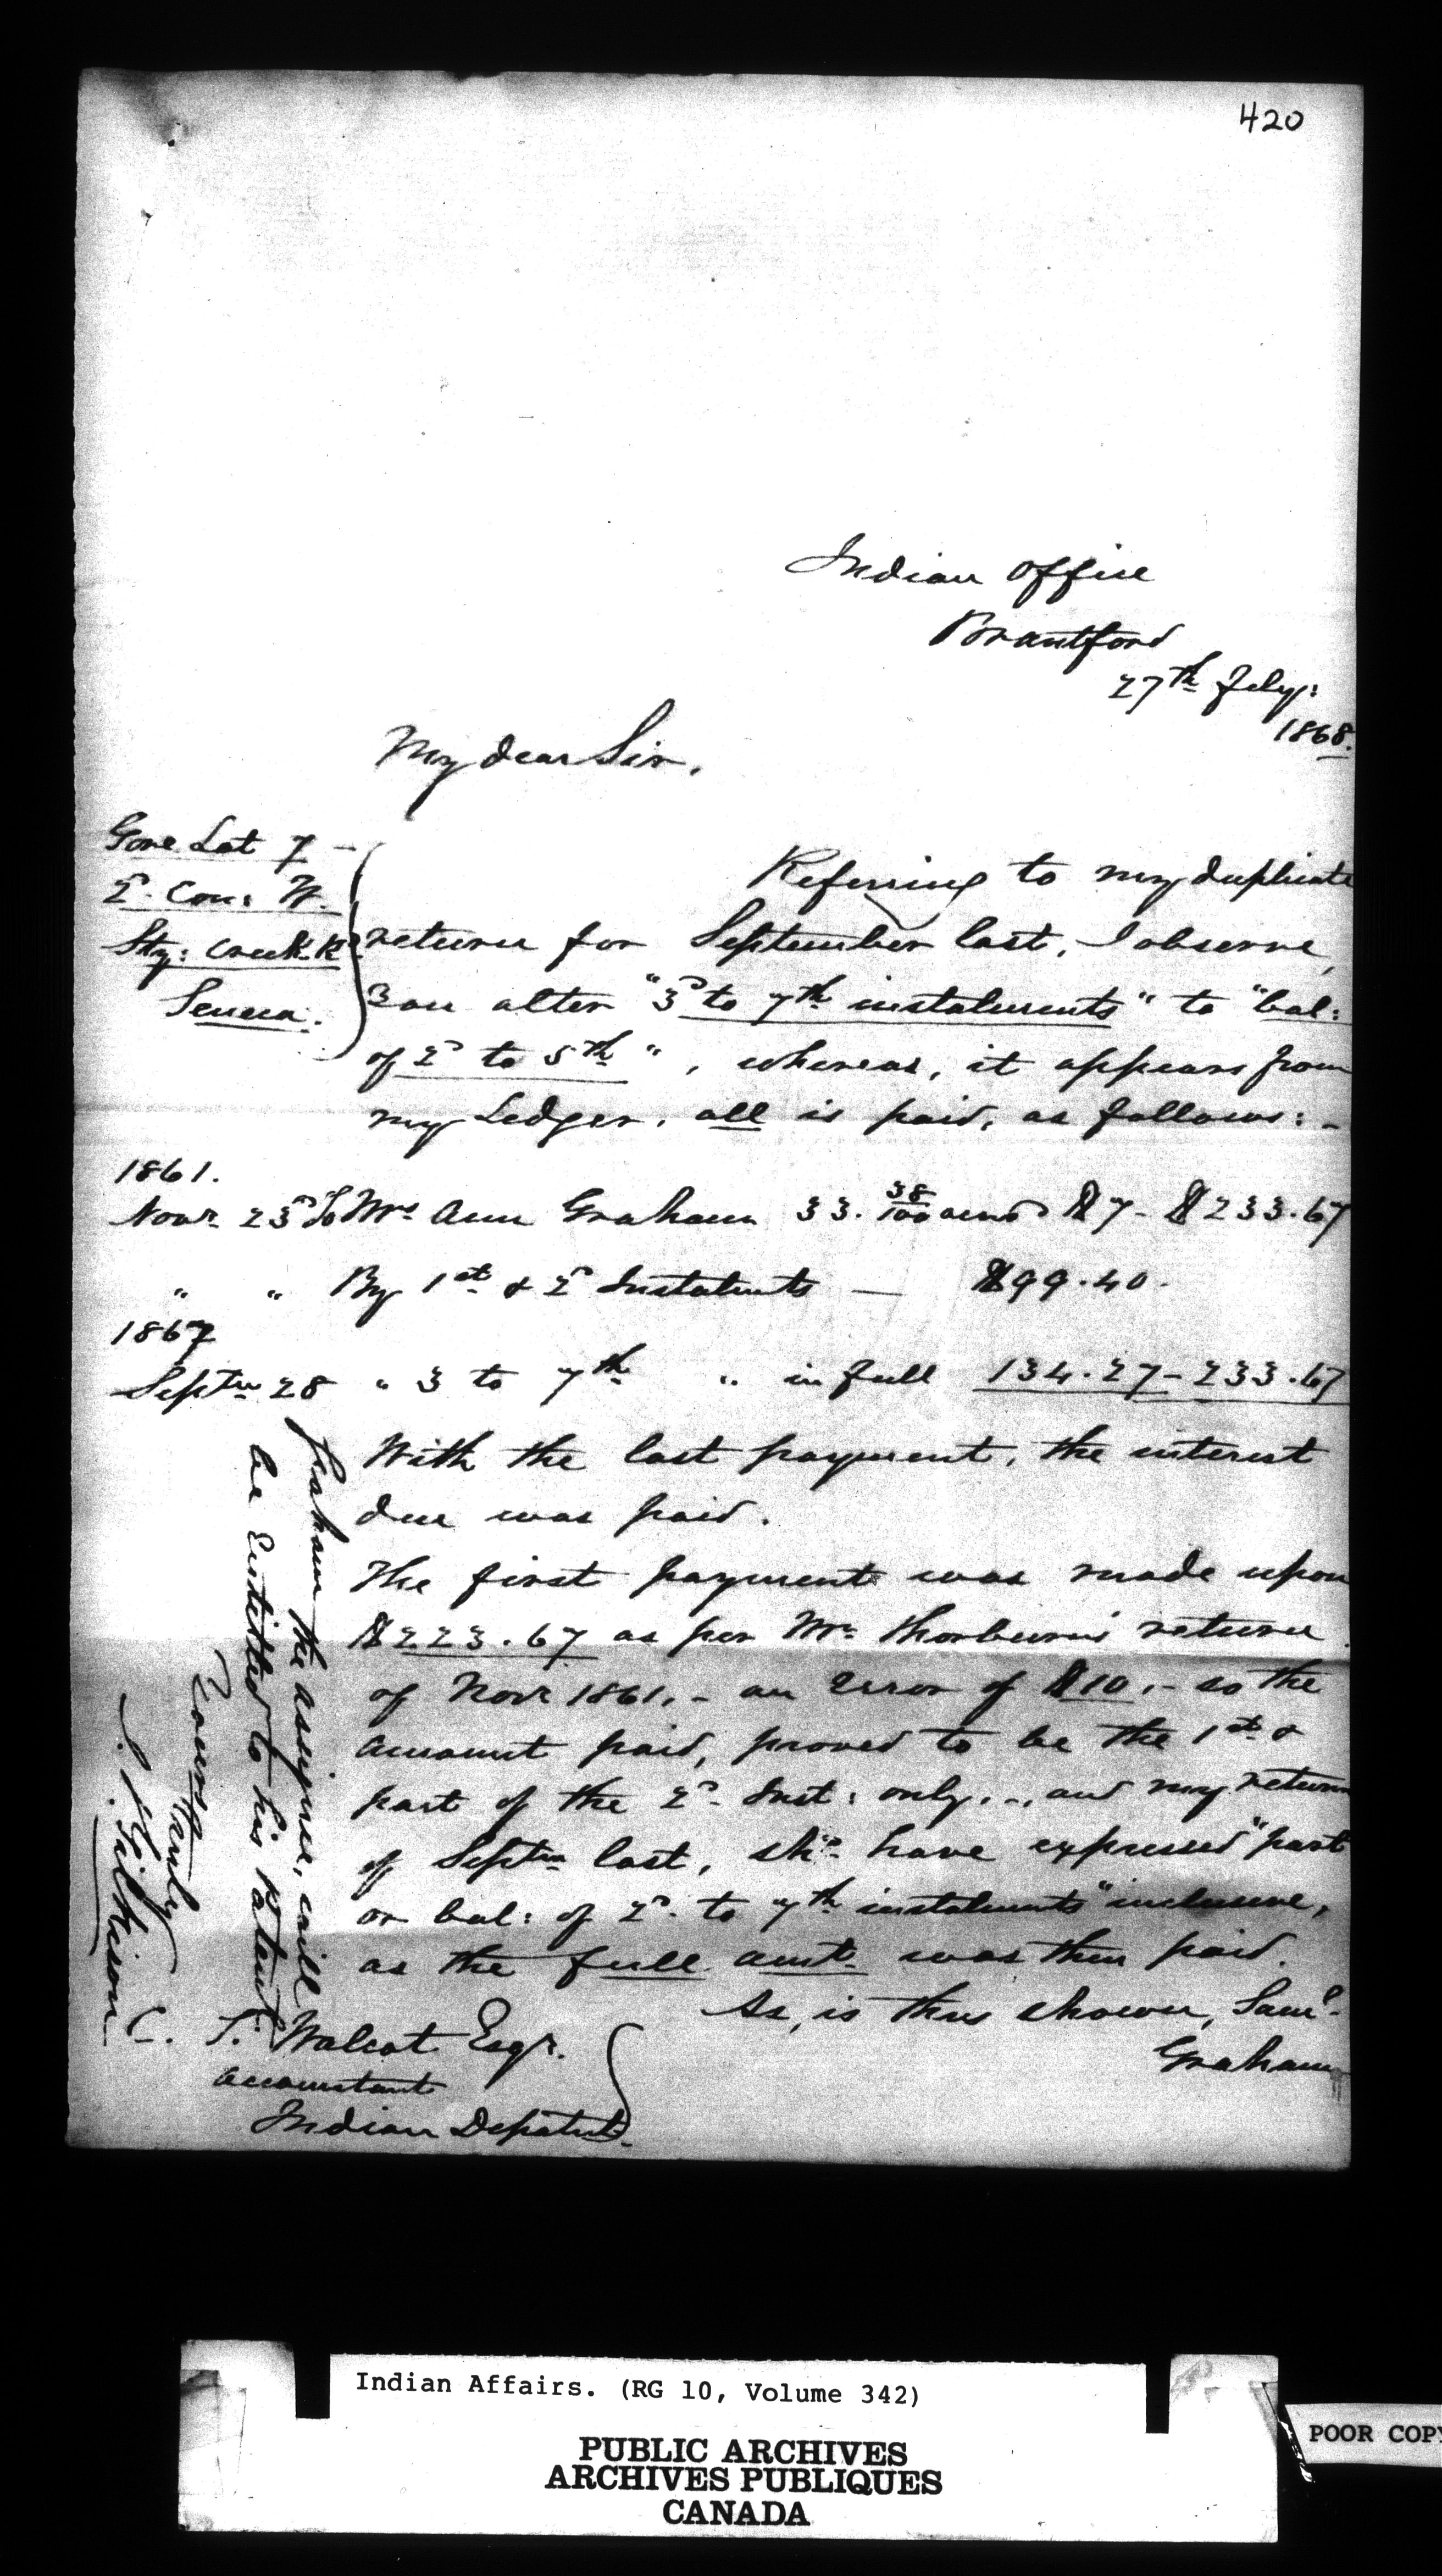 420
Indian Office
Brantford
27th July:
1868.
My dear Sir,
Gore Lot 7 -
2d. Con: W.
Stg: Creek Rd
Seneca.
Referring to my duplicate
return for September last, I observe,
you alter "3d to 7th instalments" to "bal:
of 2d to 5th", whereas, it appears from
my Ledger, all is paid, as follows: -
1861.
Novr. 23d To Mrs Ann Graham 33. 38/100 acres $7 - $233.67
" " By 1st & 2d Instalmts — $99.40.
1867
Septr 28 " 3 to 7th " in full 134.27 - 233.67
With the last payment, the interest
due was paid.
The first payment was made upon
$223.67 as per Mr. Thorburn's return
of Novr 1861, - an error of $10, - so the
amount paid, proved to be the 1st &
part of the 2d. Inst: only, -, and my return
of Septr last, shd. have expressed "part
or bal: of 2d. to 7th instalments" inclusive,
as the full amt. was then paid.
As, is thus shown, Saml.
Graham
Graham the assignee, will
be Entitled to his Patent
Yours truly
J. T. Gilkison
C. T. Walcot Esqr.
Accountant
Indian Depatmt.
Indian Affairs. (RG 10, Volume 342)
PUBLIC ARCHIVES
ARCHIVES PUBLIQUES
CANADA
POOR COPY